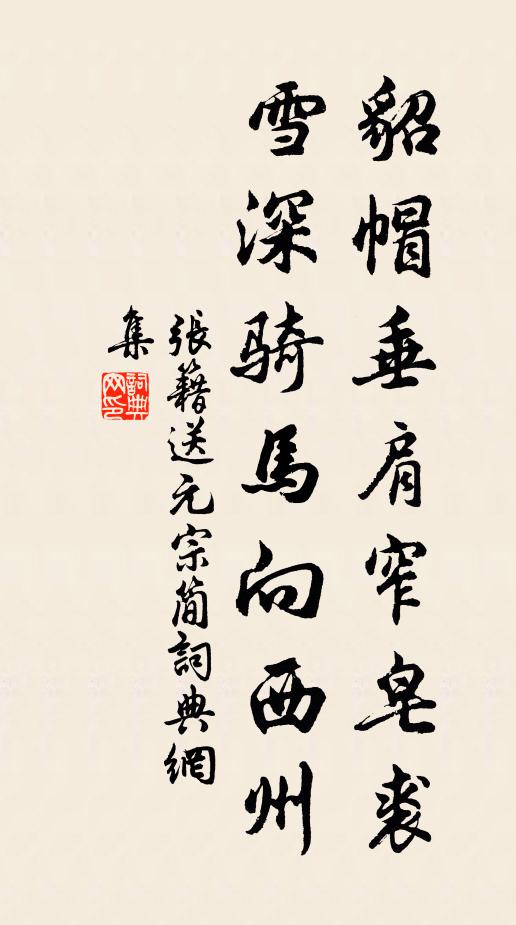 貂帽垂肩窄皂裘
雪深騎馬向西州
張籍送元宗简詞典網
集
詞典網印